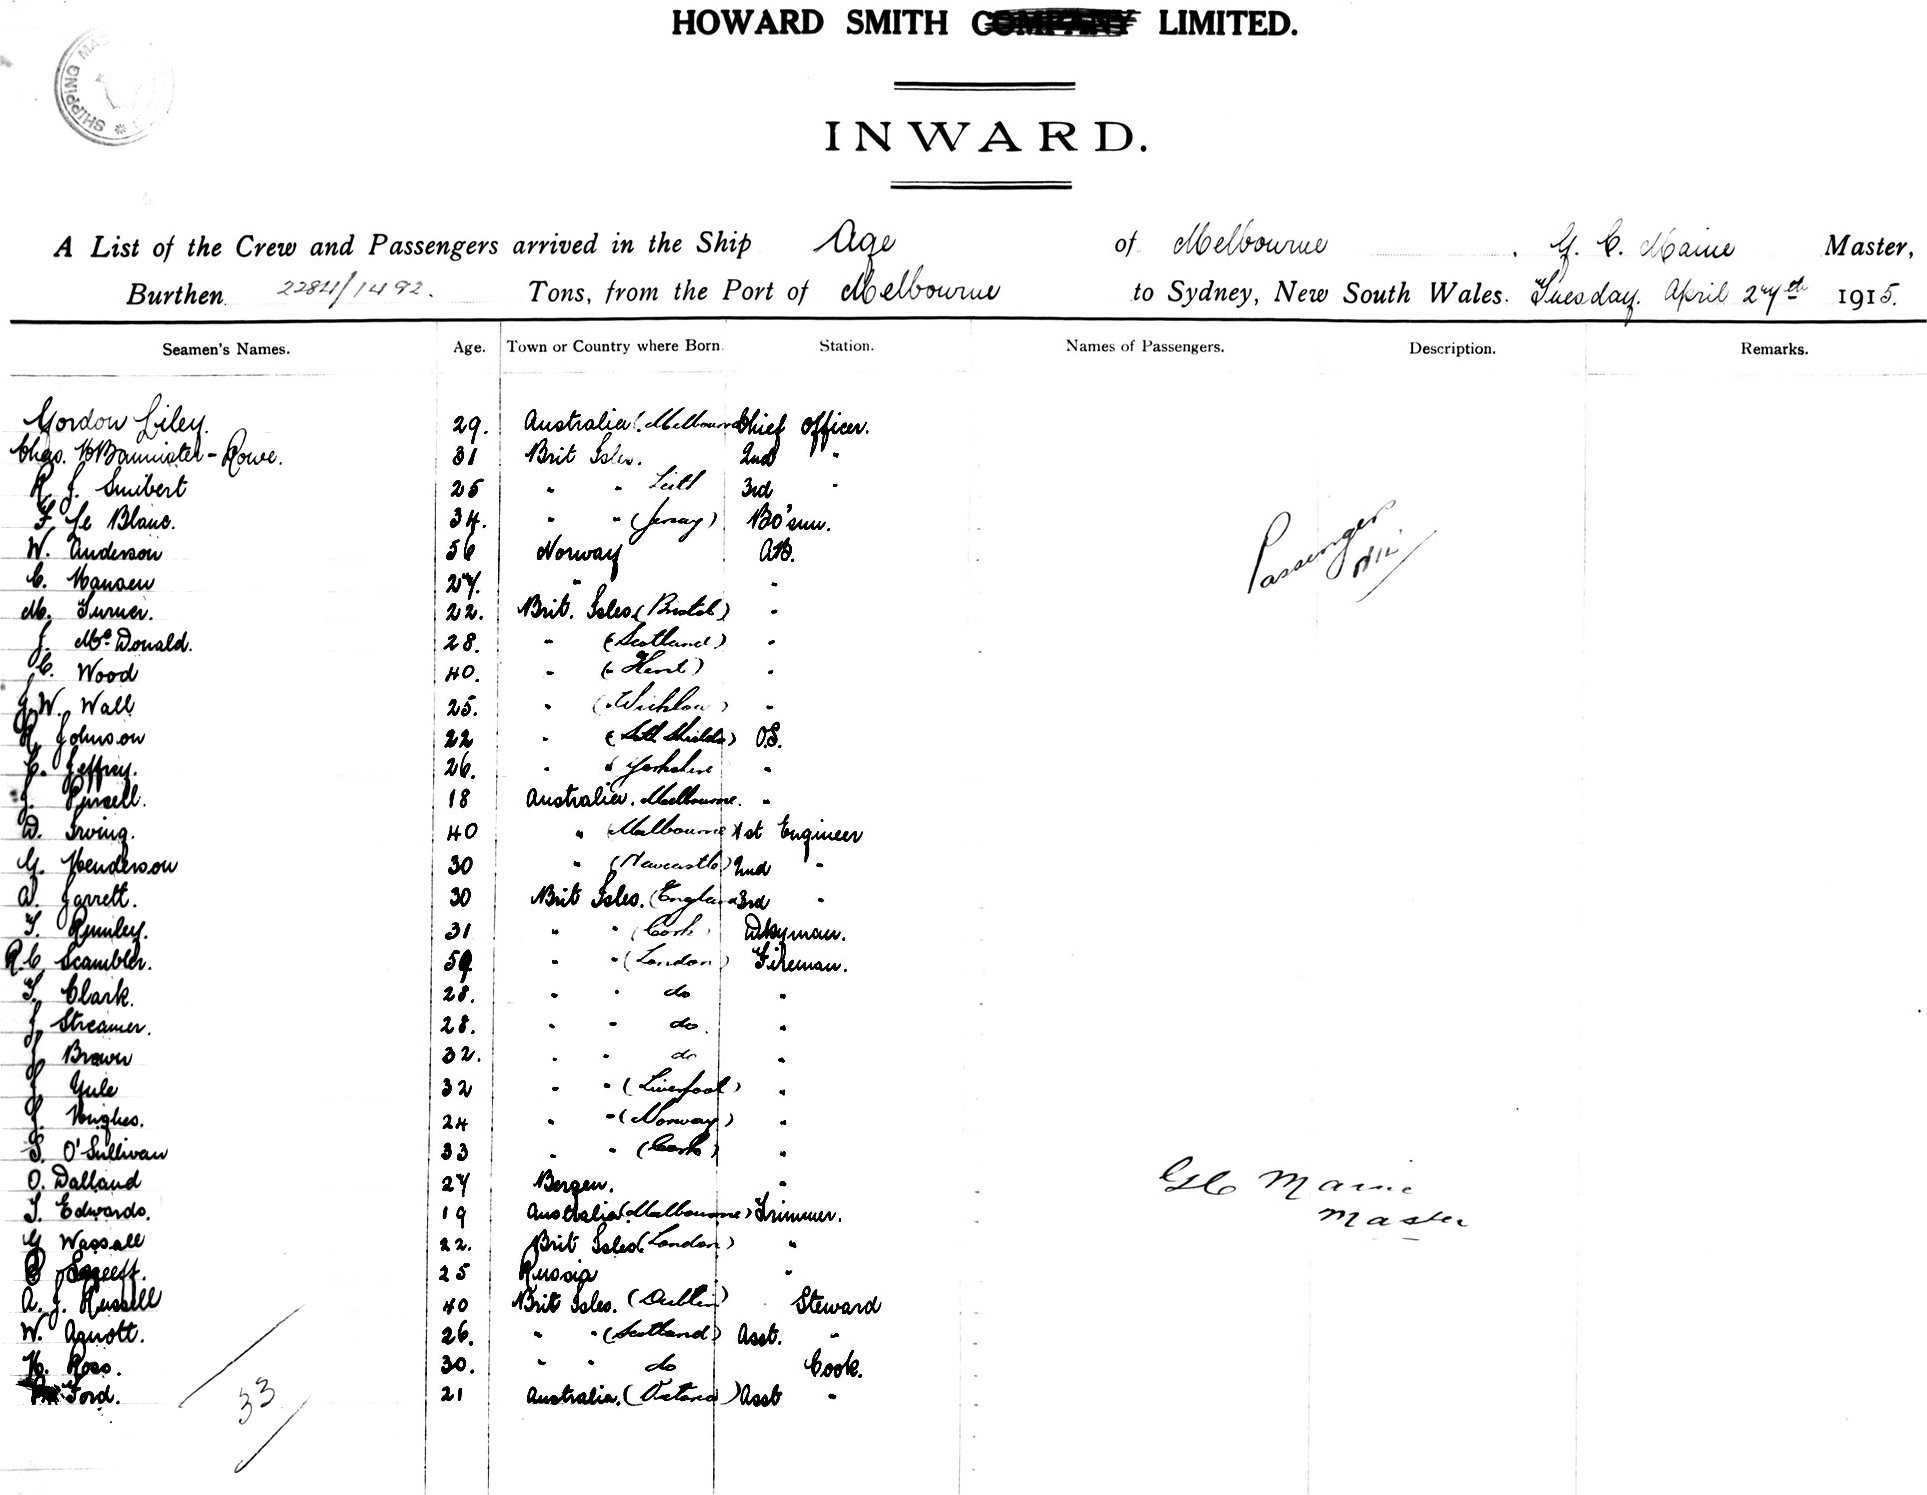 HOWARD SMITH COMPANY LIMITED.
SHIPPING MAS
INWARD.
A List of the Crew and Passengers arrived in the Ship Age of Melbourne, G. C. Maine Master,
Burthen 2284/1492. Tons, from the Port of Melbourne to Sydney, New South Wales. Tuesday. April 27th 1915.
Seamen's Names. Age. Town or Country where Born. Station. Names of Passengers. Description. Remarks.
Gordon Liley. 29. Australia (Melbourne Chief Officer.
Chas. H Bannister-Rowe. 31 Brit Isles. 2nd "
R. J. Smibert 25 " " Leith 3rd "
F. Le Blanc. 34. " " (Jersey) Bo'sun.
Passengers Nil
W. Anderson 56 Norway AB.
C. Hansen 27. " "
M. Turner. 22. Brit. Isles (Bristol) "
J. McDonald. 28. " (Scotland) "
C. Wood 40. " (Kent) "
J. W. Wall 25. " (Wicklow) "
R. Johnson 22 " (Sth Shields) O.S.
C. Jeffrey. 26. " " Yorkshire "
J. Pursell. 18 Australia. Melbourne. "
D. Irving. 40 " (Melbourne) 1st Engineer
G. Henderson 30 " (Newcastle) 2nd "
A. Jarrett. 30 Brit Isles. (England 3rd "
T. Rumley. 31 " " (Cork) Dkyman.
R. C Scambler. 59 " " (London) Fireman.
T. Clark. 28. " " do "
J. Streamer. 28. " " do. "
J. Brown 32. " " do "
J. Yule 32 " " (Liverpool) "
J. Hughes. 24 " " (Norway) "
S. O'Sullivan 33 " " (Cork) "
O. Dalland 27 Bergen. "
G C Maine
Master
T. Edwards. 19 Australia (Melbourne) Trimmer.
G Wassall 22. Brit Isles (London) "
25 Russia "
A. J. Russell 40 Brit Isles. (Dublin) Steward
W. Agnott. 26. " " (Scotland) Asst. "
H. Ross. 30. " " do Cook.
Ford. 21 Australia. (Victoria) Asst "
33